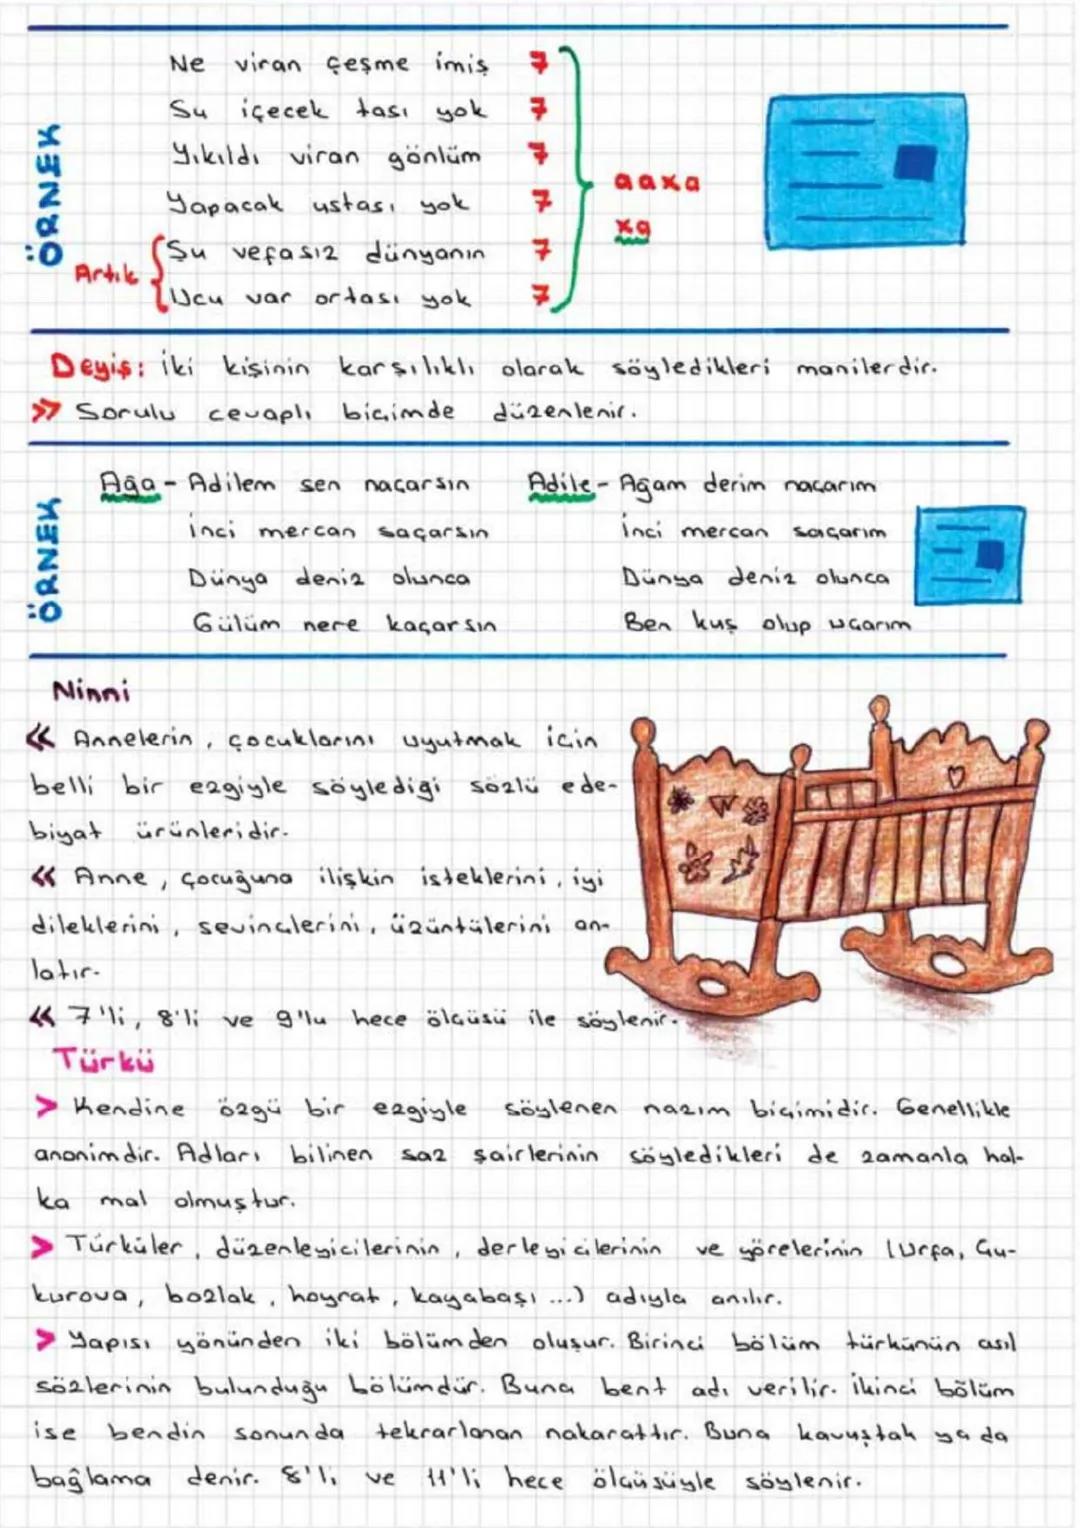 ÖRNEK
Ne viran çeşme imiş 7
Su içecek tası yok 7
Yıkıldı viran gönlüm 7
Yapacak ustası yok 7
Artık
Şu vefasız dünyanın 7
Ucu var ortası yok 7
aaxa
xa
Deyiş: İki kişinin karşılıklı olarak söyledikleri manilerdir.
>> Sorulu cevaplı biçimde düzenlenir.
ÖRNEK
Ağa - Adilem sen naçarsın
İnci mercan saçarsın
Dünya deniz olunca
Gülüm nere kaçarsın
Adile - Ağam derim naçarım
İnci mercan saçarım
Dünya deniz olunca
Ben kuş olup uçarım
Ninni
« Annelerin, çocuklarını uyutmak için
belli bir ezgiyle söylediği sözlü ede-
biyat ürünleridir.
« Anne, çocuğuna ilişkin isteklerini, iyi
dileklerini, sevinçlerini, üzüntülerini an-
latır.
« 7'li, 8'li ve 9'lu hece ölçüsü ile söylenir.
Türkü
> Kendine özgü bir ezgiyle söylenen nazım biçimidir. Genellikle
anonimdir. Adları bilinen saz şairlerinin söyledikleri de zamanla hal-
ka mal olmuştur.
> Türküler, düzenleyicilerinin, derleyicilerinin ve yörelerinin (Urfa, Çu-
kurova, bozlak, hoyrat, kayabaşı ...) adıyla anılır.
> Yapısı yönünden iki bölümden oluşur. Birinci bölüm türkünün asıl
sözlerinin bulunduğu bölümdür. Buna bent adı verilir. İkinci bölüm
ise bendin sonunda tekrarlanan nakarattır. Buna kavuştak ya da
bağlama denir. 8'li ve 11'li hece ölçüsüyle söylenir.